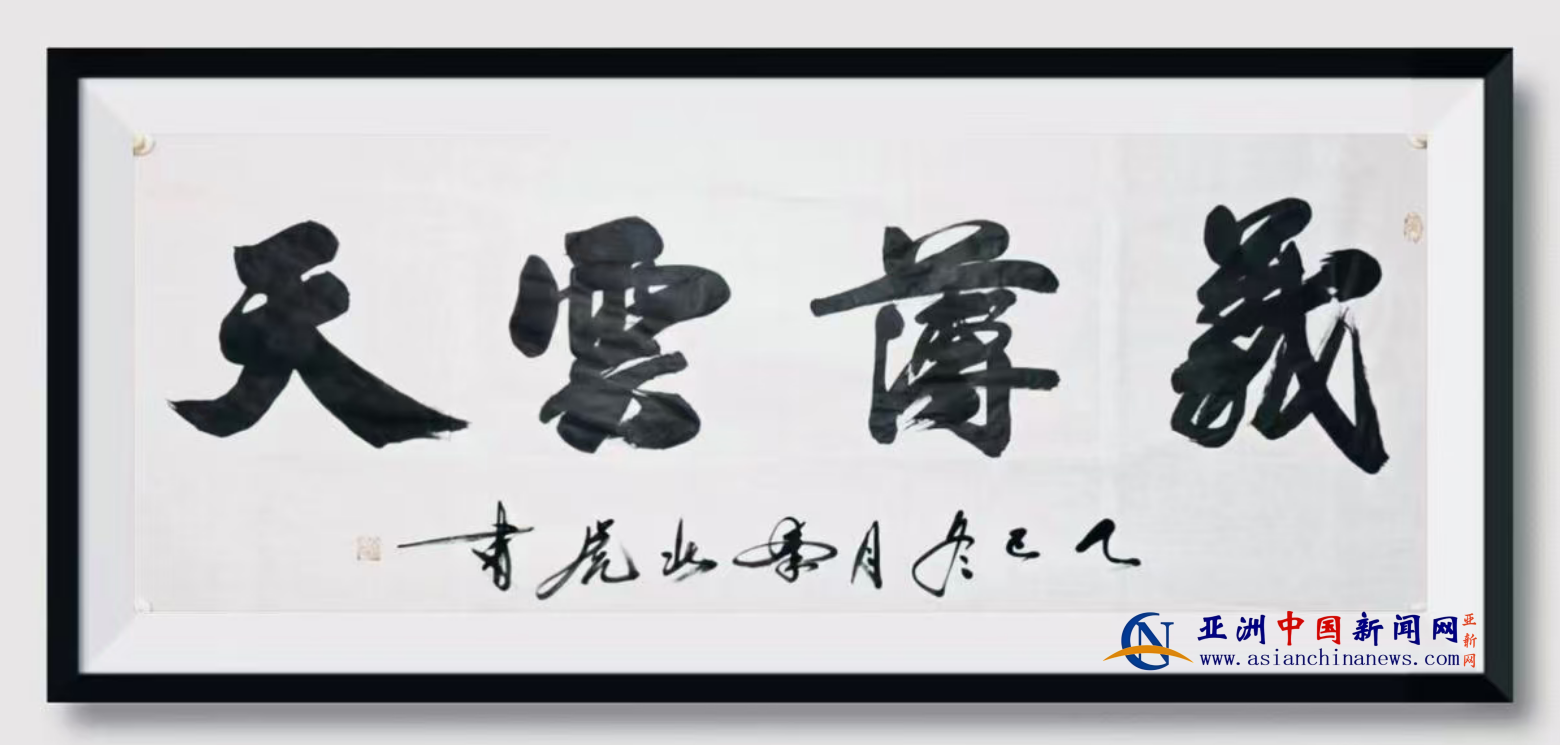 義薄雲天
乙巳冬月秦兆虎書
亚洲中国新闻网
亚新网
www.asianchinanews.com